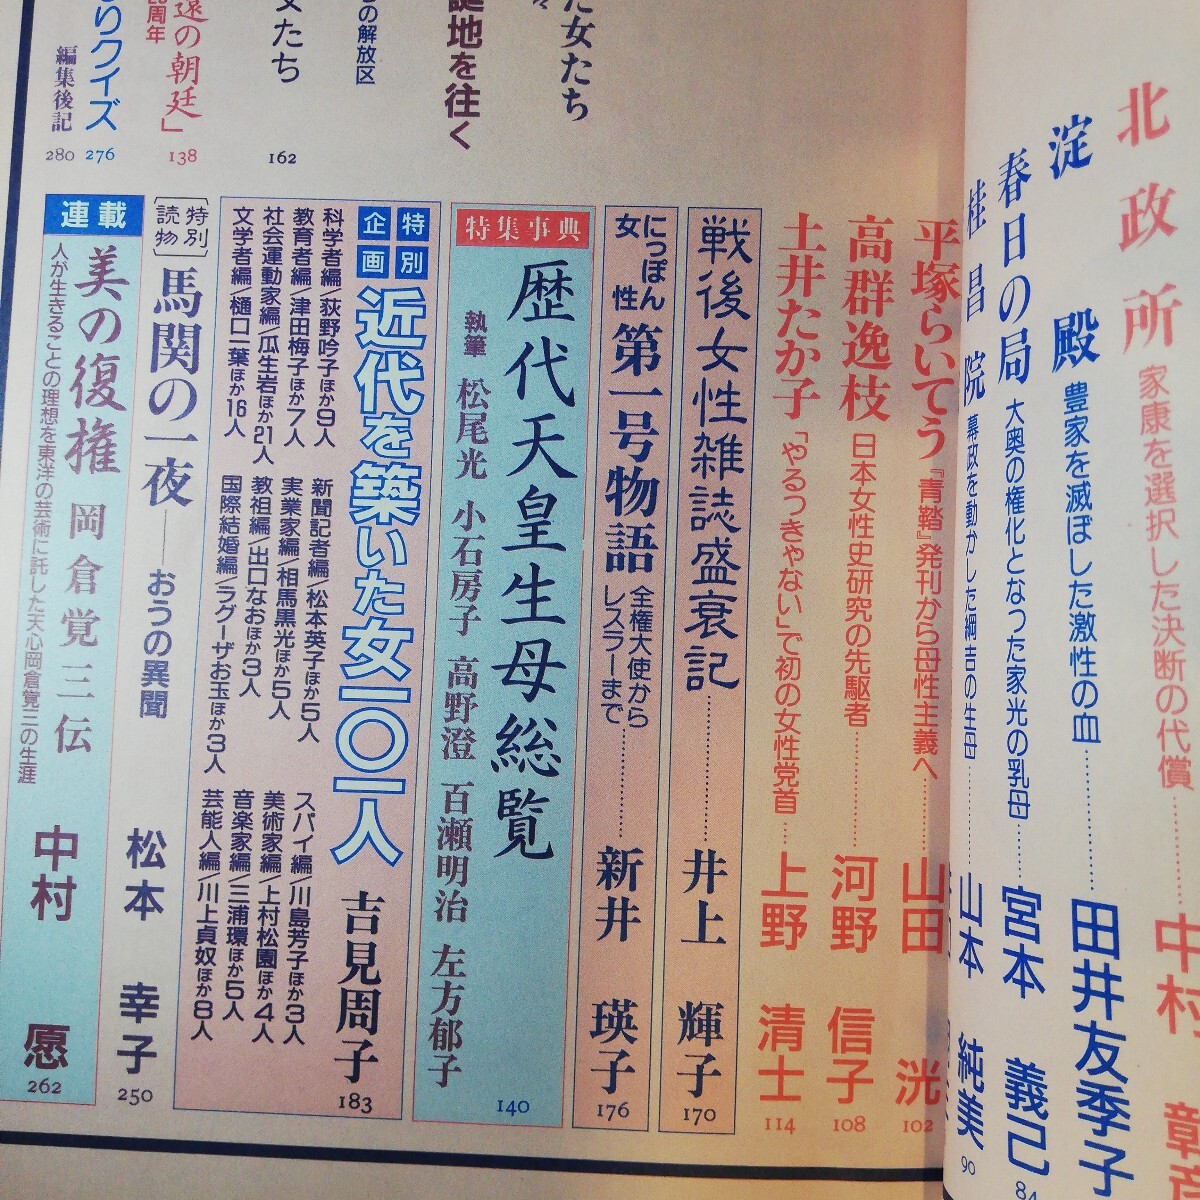 北政所
家康を選択した決断の代償
中村 彰
淀殿
豊家を滅ぼした激性の血
田井友季子
春日の局
大奥の権化となった家光の乳母
宮本 義己
84
桂昌院
幕政を動かした綱吉の生母
山本 純美
90
平塚らいてう
『青鞜』発刊から母性主義へ
山田 洸
102
高群逸枝
日本女性史研究の先駆者
河野 信子
108
土井たか子
「やるっきゃない」で初の女性党首
上野 清士
114
戦後女性雑誌盛衰記
井上 輝子
170
にっぽん
女性
第一号物語
全権大使から
レスラーまで
新井 瑛子
176
た女たち
誕地を往く
の解放区
女たち
162
遠の朝廷」
周年
138
りクイズ
276
編集後記
280
特集事典
歴代天皇生母総覧
執筆 松尾光 小石房子 高野澄 百瀬明治 左方郁子
140
特別
企画
近代を築いた女一〇一人
吉見周子
183
科学者編/荻野吟子ほか9人
教育者編/津田梅子ほか7人
社会運動家編/瓜生岩ほか21人
文学者編/樋口一葉ほか16人
新聞記者編/松本英子ほか5人
実業家編/相馬黒光ほか5人
教祖編/出口なおほか3人
国際結婚編/ラグーザお玉ほか3人
スパイ編/川島芳子ほか3人
美術家編/上村松園ほか4人
音楽家編/三浦環ほか5人
芸能人編/川上貞奴ほか8人
[特別読物]
馬関の一夜──おうの異聞
松本 幸子
250
連載
美の復権 岡倉覚三伝
人が生きることの理想を東洋の芸術に託した天心岡倉覚三の生涯
中村 愿
262